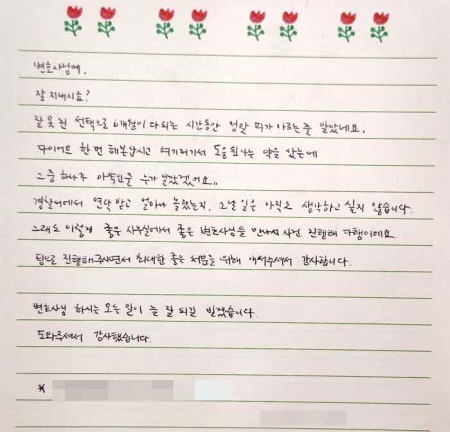 변호사님께,
잘 지내시죠?
잘못된 선택으로 6개월이 다되는 시간동안 정말 피가 마르는줄 알았네요,
다이어트 한번 해본답시고 여기저기서 도움된다는 약을 샀는데
그중 하나가 마약인줄 누가 알았겠어요..
경찰서에서 연락 받고 얼마나 놀랐는지, 그날 일은 아직도 생각하고 싶지 않습니다.
그래도 이렇게 좋은 사무실에서 좋은 변호사님들 만나서 사건 진행해 다행이에요
팀으로 진행해주시면서 최대한 좋은 처분을 위해 애써주셔서 감사합니다.
변호사님 하시는 모든 일이 늘 잘 되길 빌겠습니다.
도와주셔서 감사했습니다.
*